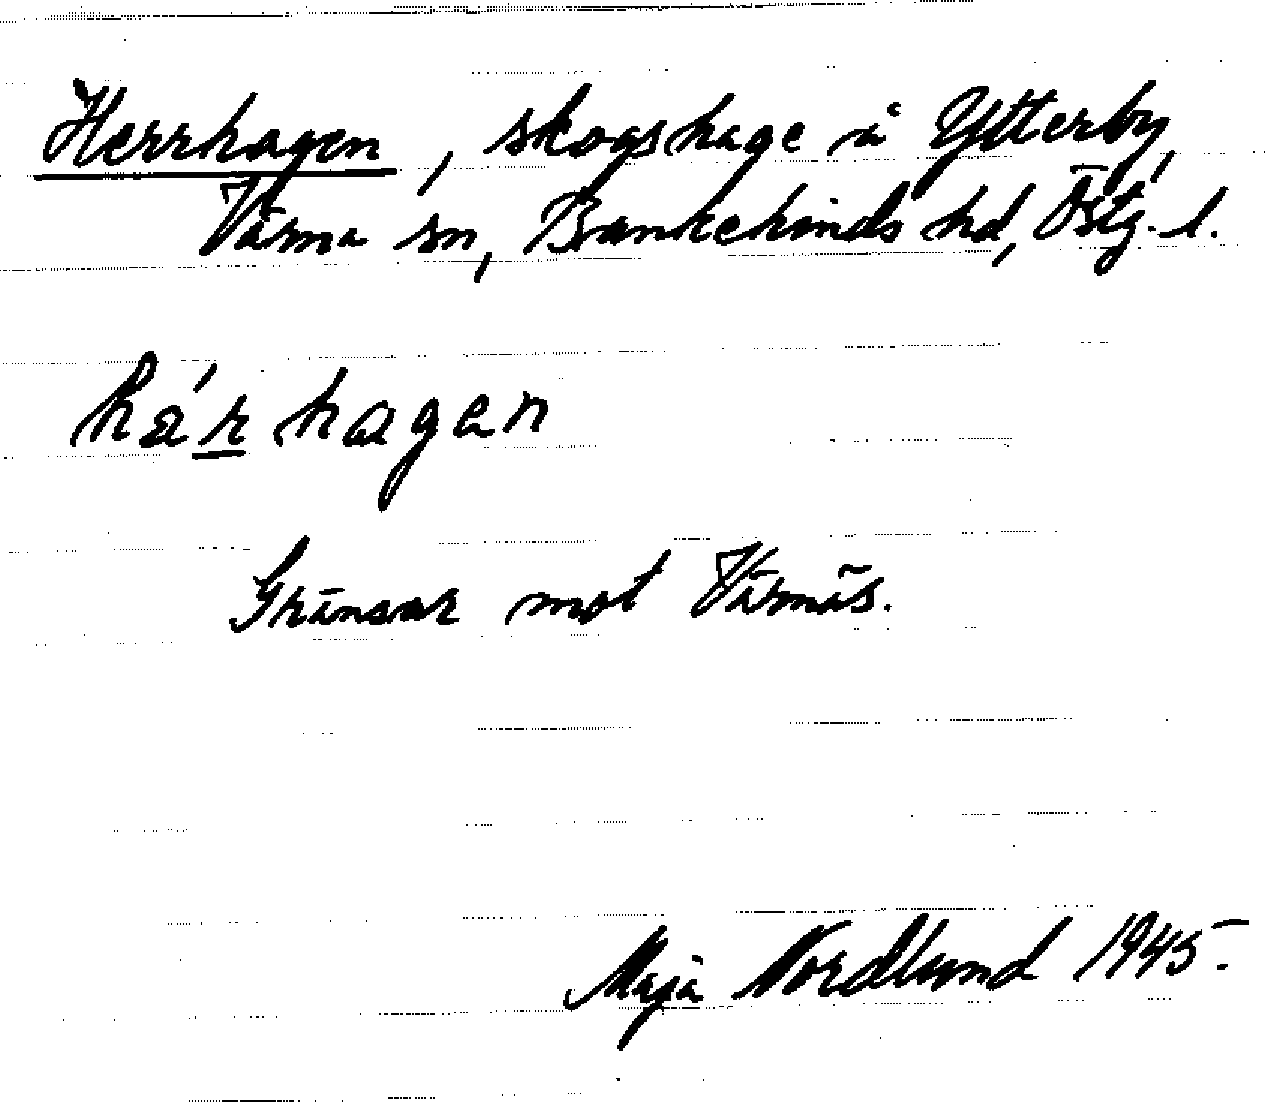 Herrhagen, skogshage å Ytterby,
Vårna sn, Bankekinds hd, Östg.-l.
hä́rhagen
Gränsar mot Vårnäs.
Maja Nordlund 1945.